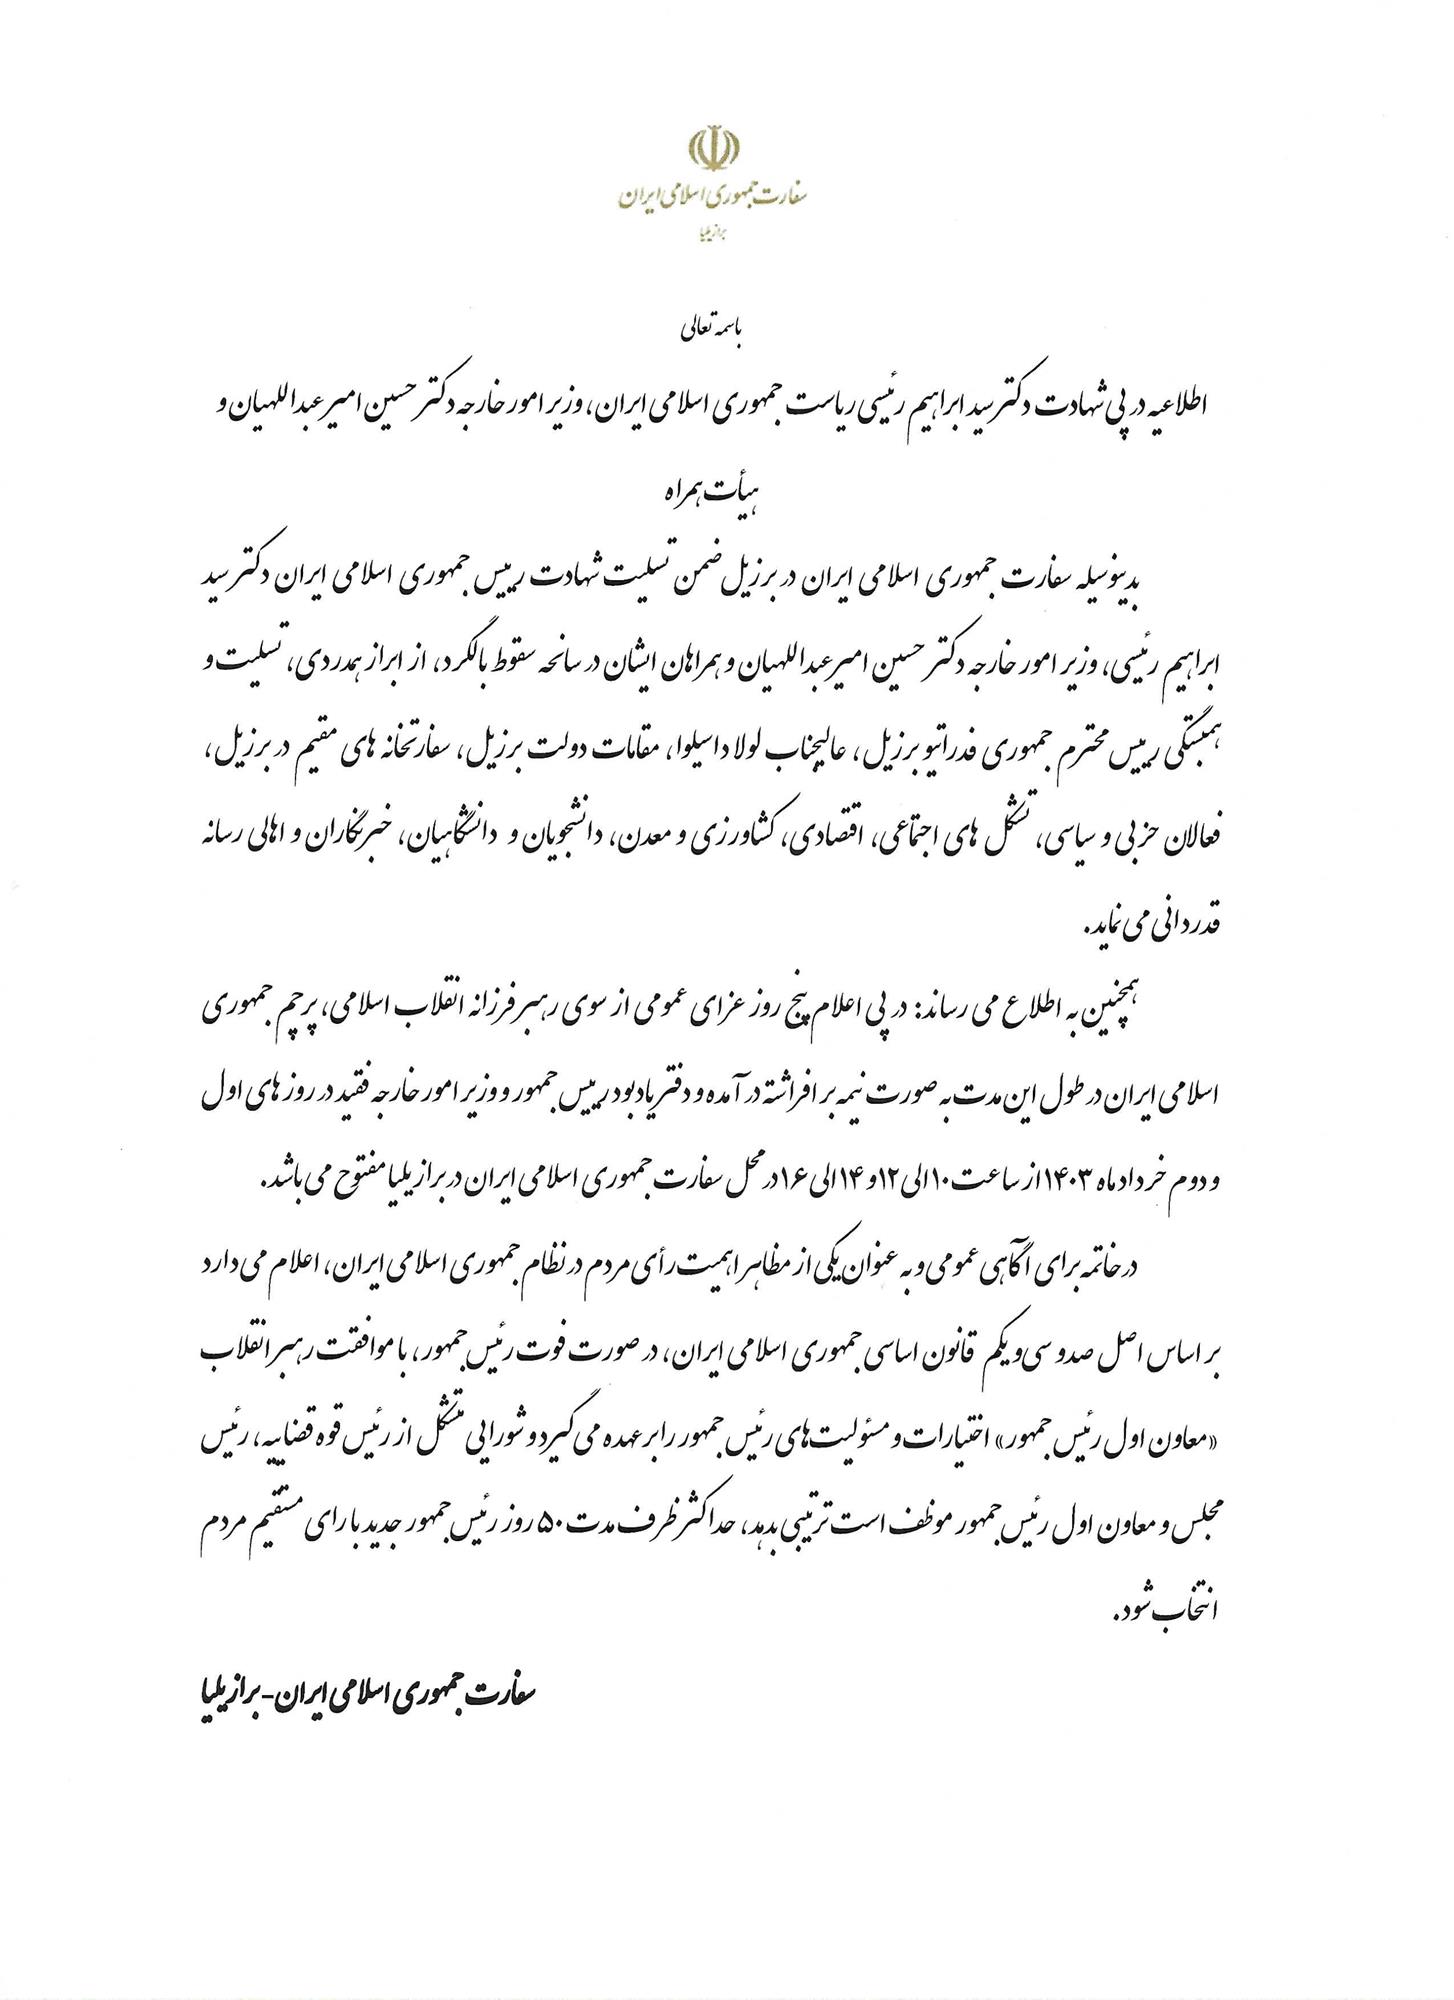 سفارت جمهوری اسلامی ایران
برازیلیا
باسمه تعالی
اطلاعیه در پی شهادت دکتر سید ابراهیم رئیسی ریاست جمهوری اسلامی ایران، وزیر امور خارجه دکتر حسین امیرعبداللهیان و
هیأت همراه
بدینوسیله سفارت جمهوری اسلامی ایران در برزیل ضمن تسلیت شهادت رییس جمهوری اسلامی ایران دکتر سید
ابراهیم رئیسی، وزیر امور خارجه دکتر حسین امیرعبداللهیان و همراهان ایشان در سانحه سقوط بالگرد، از ابراز همدردی، تسلیت و
همبستگی رییس محترم جمهوری فدراتیو برزیل، عالیجناب لولا داسیلوا، مقامات دولت برزیل، سفارتخانه های مقیم در برزیل،
فعالان حزبی و سیاسی، تشکل های اجتماعی، اقتصادی، کشاورزی و معدن، دانشجویان و دانشگاهیان، خبرنگاران و اهالی رسانه
قدردانی می نماید.
همچنین به اطلاع می رساند: در پی اعلام پنج روز عزای عمومی از سوی رهبر فرزانه انقلاب اسلامی، پرچم جمهوری
اسلامی ایران در طول این مدت به صورت نیمه برافراشته در آمده و دفتر یادبود رییس جمهور و وزیر امور خارجه فقید در روز های اول
و دوم خرداد ماه ۱۴۰۳ از ساعت ۱۰ الی ۱۲ و ۱۴ الی ۱۶ در محل سفارت جمهوری اسلامی ایران در برازیلیا مفتوح می باشد.
در خاتمه برای آگاهی عمومی و به عنوان یکی از مظاهر اهمیت رأی مردم در نظام جمهوری اسلامی ایران، اعلام می دارد
بر اساس اصل صد و سی و یکم قانون اساسی جمهوری اسلامی ایران، در صورت فوت رئیس جمهور، با موافقت رهبر انقلاب
«معاون اول رئیس جمهور» اختیارات و مسئولیت‌های رئیس جمهور را بر عهده می گیرد و شورایی متشکل از رئیس قوه قضاییه، رئیس
مجلس و معاون اول رئیس جمهور موظف است ترتیبی بدهد، حداکثر ظرف مدت ۵۰ روز رئیس جمهور جدید با رای مستقیم مردم
انتخاب شود.
سفارت جمهوری اسلامی ایران-برازیلیا